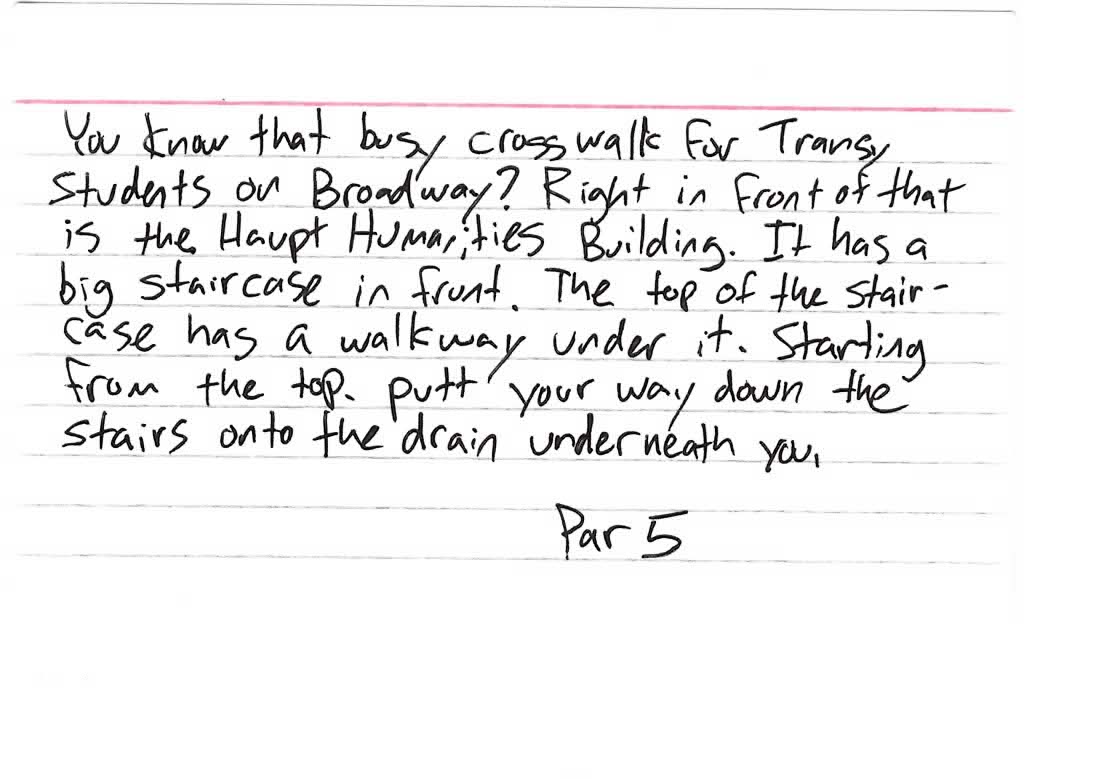 You know that busy crosswalk for Transy
Students on Broadway? Right in front of that
is the Haupt Humanities Building. It has a
big staircase in front. The top of the stair-
case has a walkway under it. Starting
from the top. putt your way down the
stairs onto the drain underneath you.
Par 5